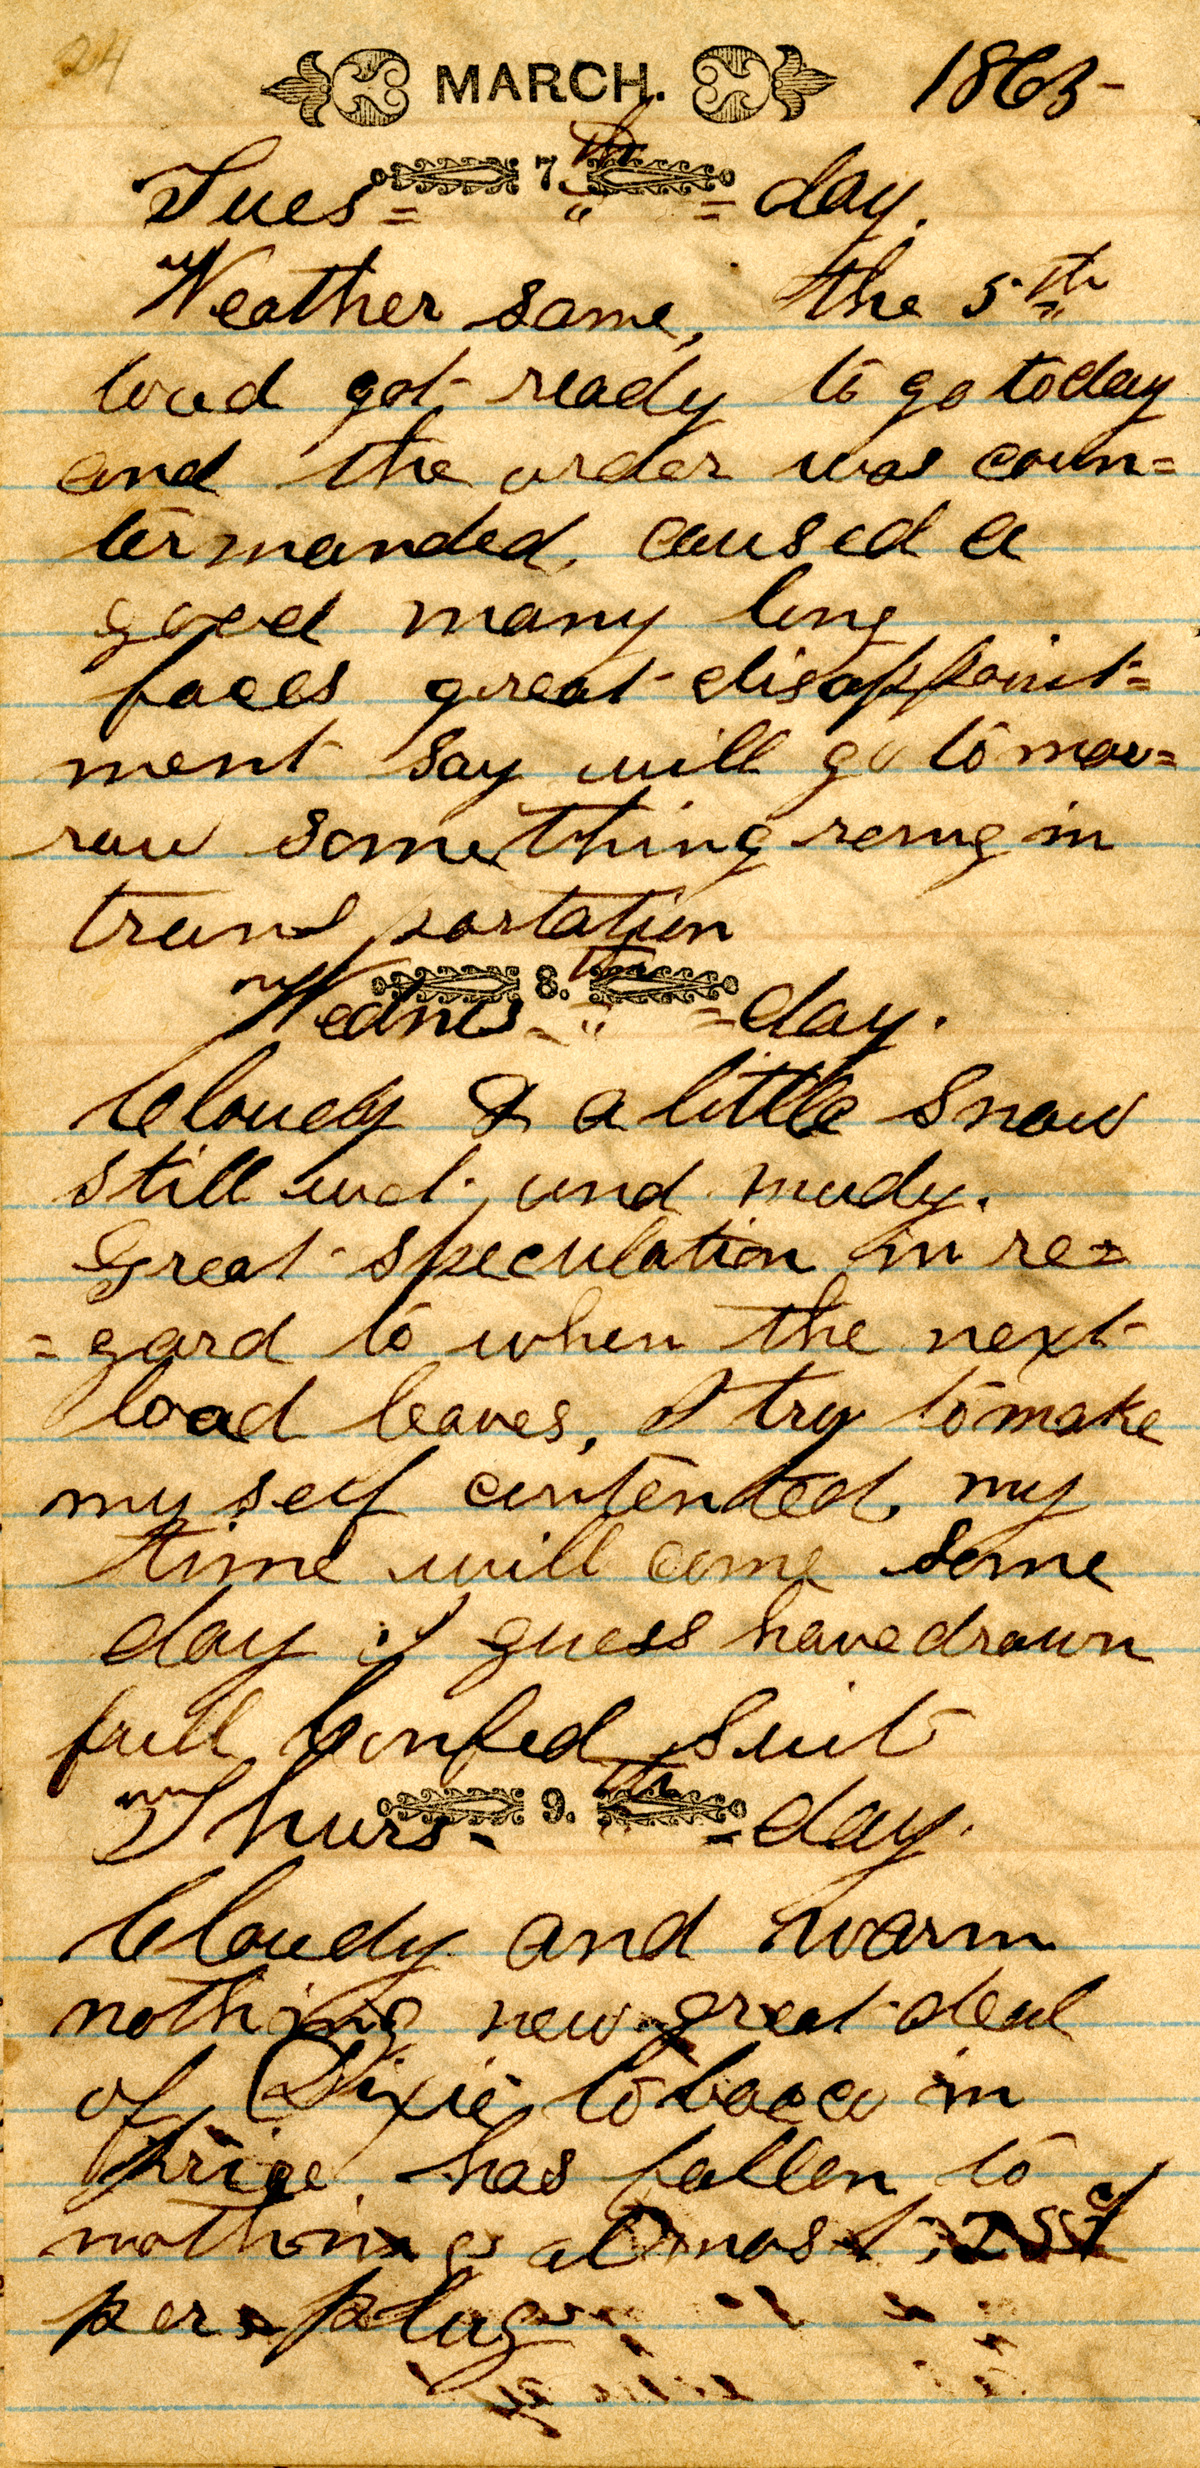 24
MARCH. 1865-
Tues= 7th =day.
Weather same, the 5th
load got ready to go today
and the order was coun=
termanded, caused a
good many long
faces great disappoint=
ment say will go tomor=
row something rong in
transportation
Wednes- 8.th =day.
Cloudy & a little snow
still wet and mudy.
Great speculation in re=
=gard to when the next
load leaves, I try to make
my self contented, my
time will come some
day I guess have drawn
full suit
Thurs- 9.th -day.
Cloudy and warm
nothing new great deal
of Dixie tobacco in
price has fallen to
nothing almost, 25 cts
per plug